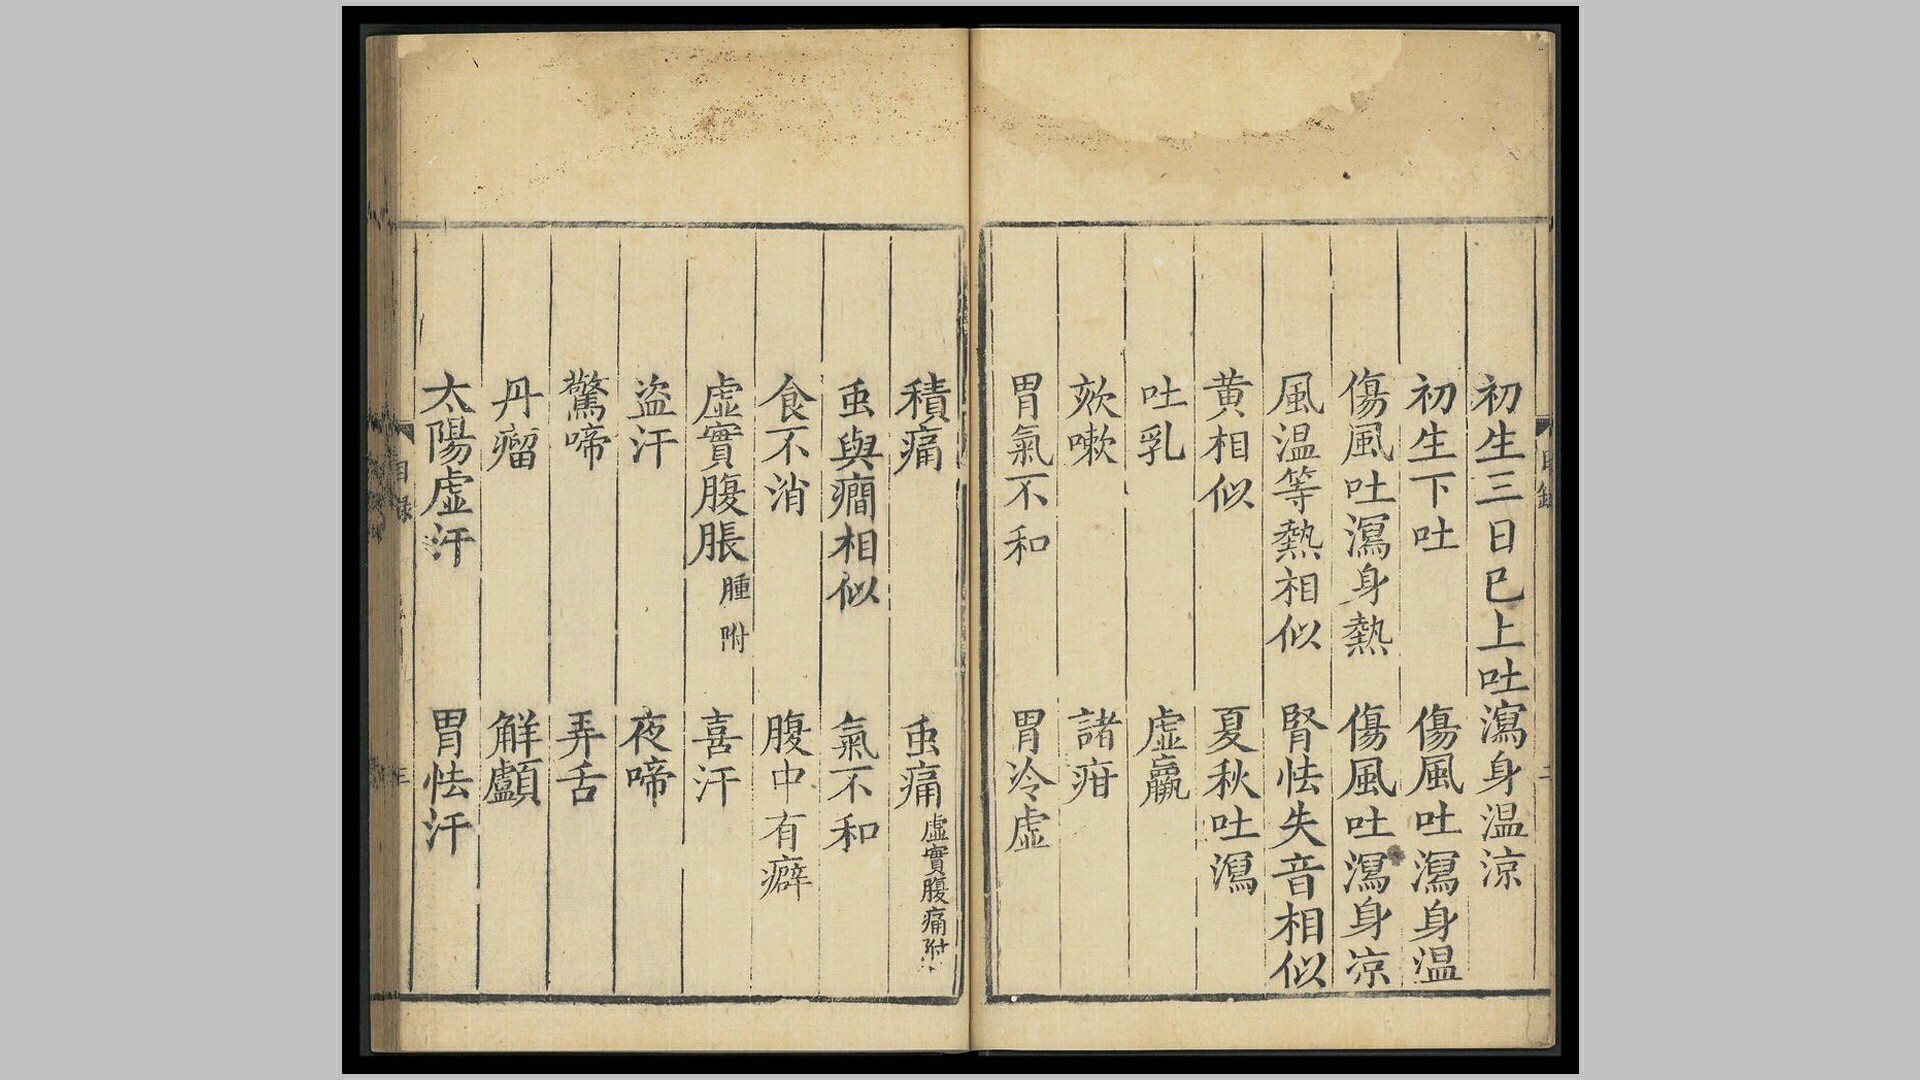 初生三日已上吐瀉身温涼
初生下吐　傷風吐瀉身温
傷風吐瀉身熱　傷風吐瀉身涼
風温等熱相似　腎怯失音相似
黄相似　夏秋吐瀉
吐乳　虚羸
欬嗽　諸疳
胃氣不和　胃冷虚
積痛　䖝痛虚實腹痛附
䖝與癇相似　氣不和
食不消　腹中有癖
虚實腹脹腫附　喜汗
盗汗　夜啼
驚啼　弄舌
丹瘤　解顱
太陽虚汗　胃怯汗
目録　三